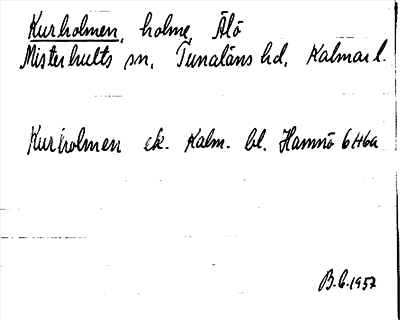 Kurholmen, holme, Älö
Misterhults sn, Tunaläns hd, Kalmar l.
Kurholmen ek. Kalm. bl. Hamnö 6H6a
B.G. 1957